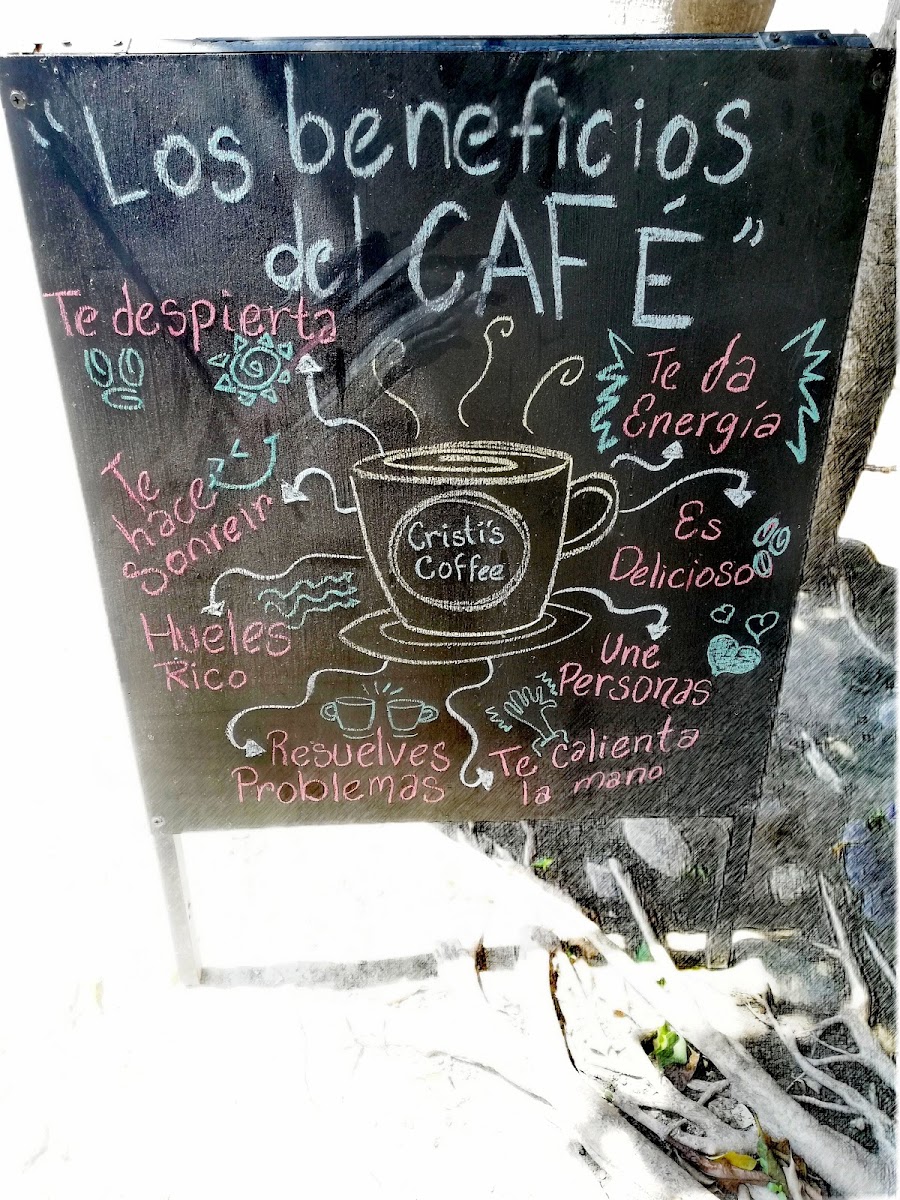 "Los beneficios
del CAFÉ"
Te despierta
Te da
Energía
Te
hace
Sonreir
Es
Delicioso
Cristi's
Coffee
Hueles
Rico
Une
Personas
Resuelves
Problemas
Te calienta
la mano